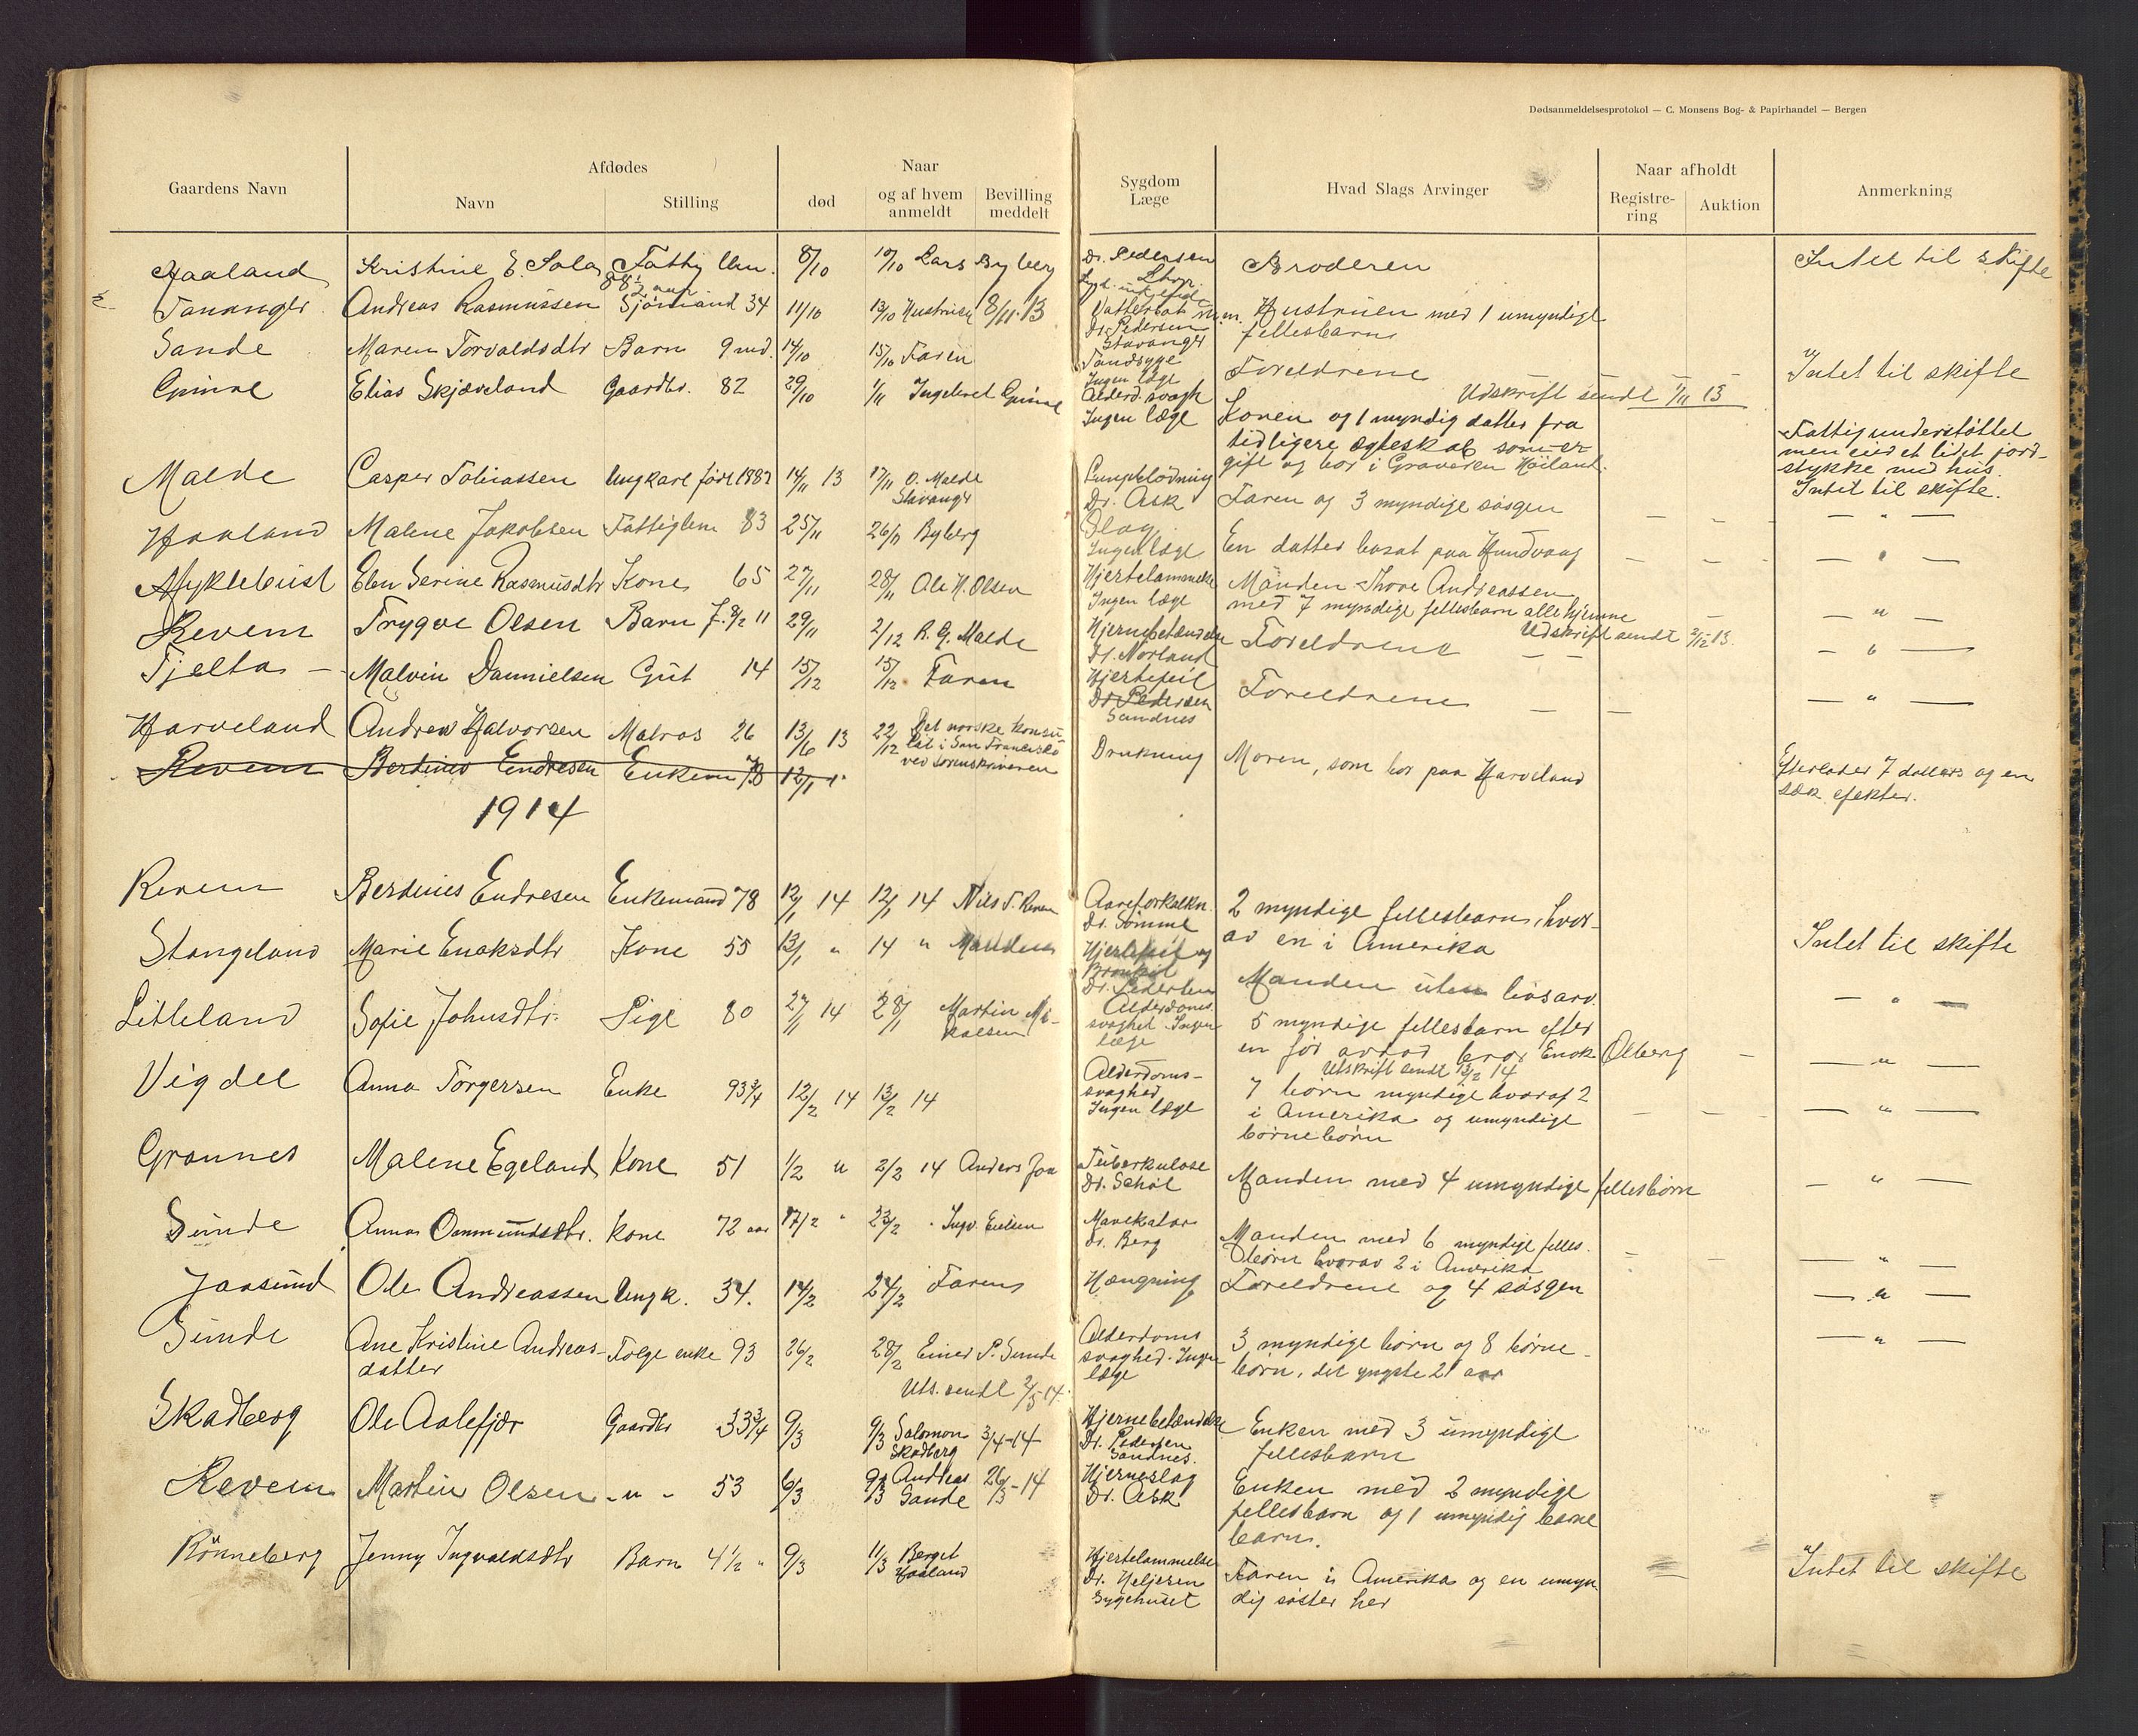 Dødsanmeldelsesprotokol — C. Monsens Bog- & Papirhandel — Bergen
Gaardens Navn
Afdødes
Navn
Stilling
Naar
død
og af hvem anmeldt
Bevilling meddelt
Sygdom Læge
Hvad Slags Arvinger
Naar afholdt
Registre-ring
Auktion
Anmerkning
Haaland Kristine E. Sola Fattig lem. 88½ aar 8/10 10/10 Lars Byberg Dr. Pedersen Broderen Intet til skifte
Tananger Andreas Rasmussen Sjømand 34 11/10 13/10 Hustruen 8/11-13 Dr. Pedersen Stavanger Hustruen med 1 umyndigt fellesbarn
Sande Maren Torvaldsdtr Barn 9 md. 14/10 15/10 Faren Tandsyge Ingen læge Foreldrene Intet til skifte
Grinne Elias Skjæveland Gaardbr. 82 29/10 1/11 Ingebret Grinne Alderd. svagh Ingen læge Udskrift sendt 1/11 13
Konen og 1 myndig datter fra
tidligere egteskab som er
gift og bor i Graveren Høiland.
Fattigunderstøttet
men eied et lidet jord-
stykke med hus.
Intet til skifte.
Malde Casper Tobiassen Ungkarl født 1887 14/11 13 17/11 O. Malde Stavanger Lungeblødning Dr. Ask Faren og 3 myndige søsgen — " —
Haaland Malene Jakobsen Fattiglem 83 25/11 26/11 Byberg Slag Ingen læge En datter bosat paa Hundvaag — " —
Myklebust Elen Serine Rasmusdtr Kone 65 27/11 28/11 Ole H. Olsen Hjertelammelse Ingen læge Manden Thore Andreassen
med 7 myndige fellesbarn alle hjemme — " —
Udskrift sendt 2/12 13.
Revem Trygve Olsen Barn f. 8/2 11 29/11 2/12 R. G. Malde Hjernebetændelse Dr. Norland Foreldrene — " —
Tjelta Malvin Dannielsen Gut 14 15/12 15/12 Faren Hjertefeil Dr. Pedersen Sandnes Foreldrene — " —
Harveland Andreas Halvorsen Matros 26 13/6 13 22/12 Det norske Konsu-
lat i San Francisko
ved sorenskriveren Drukning Moren, som bor paa Harveland Efterlader 7 dollars og en
sæk efekter.
Revem Berdines Endresen Enkem 78 12/1
1914
Revem Berdines Endresen Enkemand 78 12/1 14 12/1 14 Nils T. Revem Aareforkalkn. Dr. Sømme 2 myndige fellesbarn, hvor-
av en i Amerika Intet til skifte
Stangeland Marie Enoksdtr Kone 55 13/1 " 14 " Manden Hjertefeil og Dr. Pedersen Manden uten livsarv. — " —
Litleland Sofie Johnsdtr. Pige 80 27/1 14 28/1 Martin Mi-
kalsen Alderdoms-
svaghet. Ingen læge 5 myndige fellesbarn efter
en før avdød bror Enok Ølberg — " —
Utskrift sendt 13/2 14
Vigdel Anna Torgersen Enke 93¾ 12/2 14 13/2 14 Alderdoms-
svaghed Ingen læge 7 børn myndige hvoraf 2
i Amerika og umyndige
børnebørn — " —
Grannes Malene Egeland Kone 51 1/2 " 2/2 14 Anders Joa Tuberkulose Dr. Schøl Manden med 4 umyndige fellesbørn — " —
Sunde Anna Ommundsdtr. Kone 72 aar 17/2 " 23/2 " Mavekatar Dr. Berg Manden med 6 myndige felles-
børn hvorav 2 i Amerika — " —
Jaasund Ole Andreassen Ungk. 34. 14/2 24/2 Faren Hængning Foreldrene og 4 søsgen — " —
Sunde Ane Kristine Andreas-
datter Følge enke 93 26/2 28/2 Einer P. Sunde Alderdoms
svaghed. Ingen
læge 3 myndige børn og 8 børne-
børn, det yngste 21 aar — " —
Uts. sendt 2/5-14.
Skadberg Ole Aalefjær Gaardbr 33¾ 9/3 9/3 Salomon Skadberg 3/4-14 Hjernebetændelse Dr. Pedersen Sandnes. Enken med 3 umyndige
fellesbarn
Revem Martin Olsen - " - 53 6/3 9/3 Andreas Sande 26/3-14 Hjerneslag Dr. Ask Enken med 2 myndige
fellesbarn og 1 umyndig barne
barn.
Rønneberg Jenny Ingvaldsdtr Barn 4½ " 9/3 11/3 Berget Haaland Hjertelammelse Dr. Heljesen Sygehuset Faren i Amerika og en umyn-
dig søster her Intet til skifte